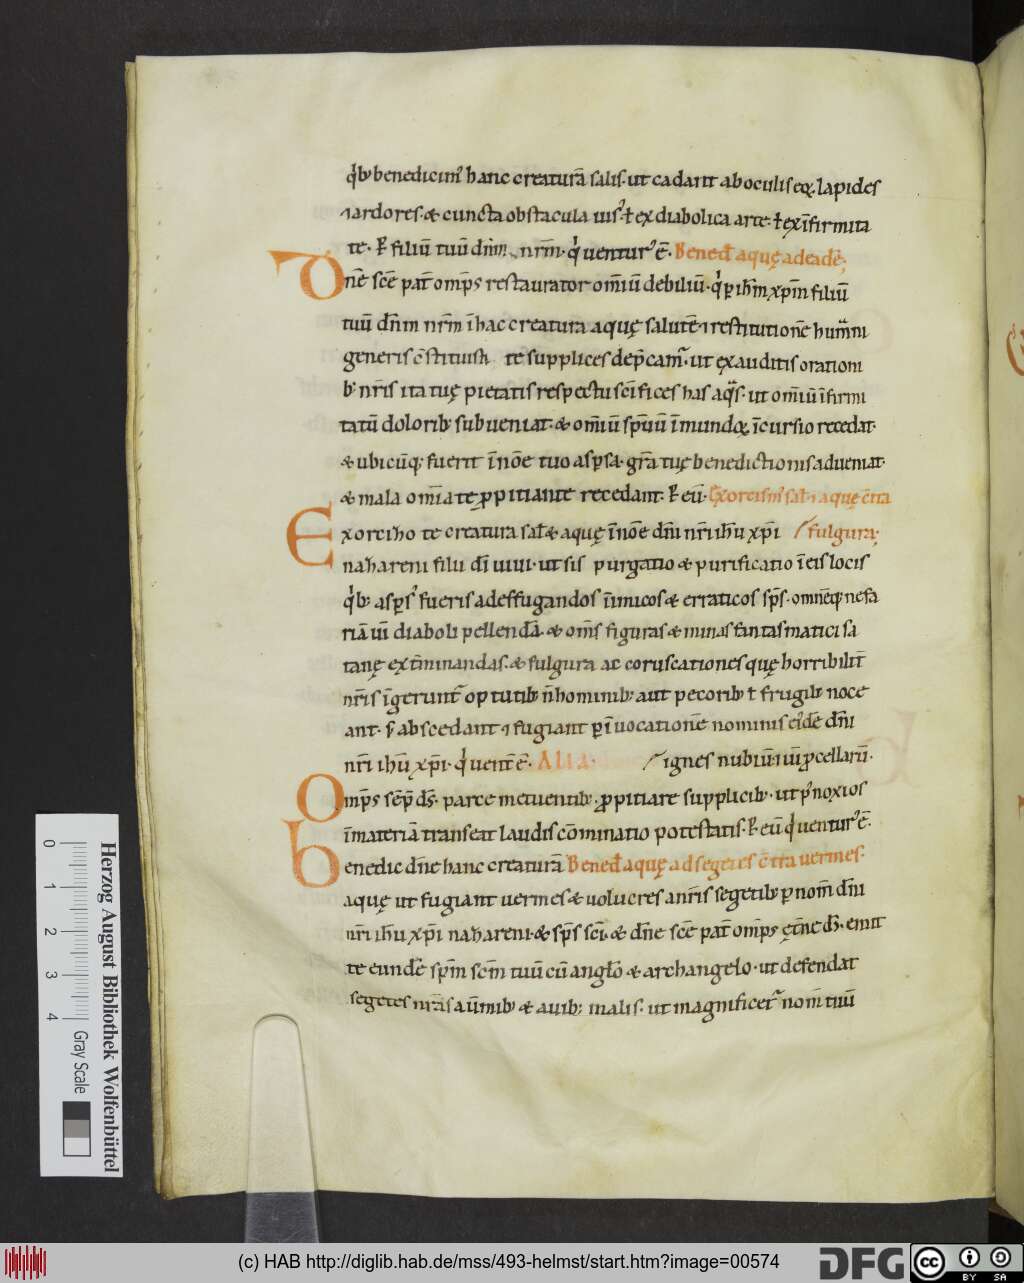 qͥb benedicim᷒ hanc creaturā salis· ut cadant ab oculis eoꝝ lapides
⁊ ardores· & cuncta obstacula uis᷒· ł ex diabolica arte· ł ex īfirmita
te· P̄ filiū tuū dn̄m nr̄m· qͥ uentur᷒ ē· Bened̄ aquę ad eadē·
Dn̄e sc̄e pat̄ omp̄s restaurator om̄iū debiliū· qͥ ꝑ ih̄m xp̄m filiū
tuū dn̄m nr̄m ī hac creatura aquę salutē ⁊ restitutionē hum̄ani
generis c̄stituisti te supplices dep̄cam᷒· ut exauditis orationi
b᷒ nr̄is ita tuę pietatis respectu scīfices has aqͣs· ut om̄iū īfirmi
tatū dolorib᷒ subueniat· & om̄iū sp̄uū īmundoꝝ īcursio recedat·
& ubicūq; fuerit ī nōe tuo aspsa· gr̄a tuę benedictionis adueniat·
& mala om̄ia te ꝓpitiante recedant· P̄ eū· Exorcism᷒ sał ⁊ aquę c̄tra
Exorcizo te creatura sał & aquę ī nōe dn̄i nr̄i ih̄u xp̄i fulgura·
nazareni filii dī uiui· ut sis purgatio & purificatio ī eis locis
qͥb; aspers᷒ fueris ad effugandos īimicos & erraticos sp̄s· omnēq; nefa
riā uī diaboli pellendā· & om̄s figuras & minas fantasmatici sa
tanę ext̄minandas· & fulgura ac coruscationes quę horribilit̄
nr̄is īgerunt᷒ optutib᷒ n̄ hominib᷒ aut pecorib᷒ ł frugib᷒ noce
ant· s; abscedant ⁊ fugiant ꝑ īuocationē nominis ei᷒dē dn̄i
nr̄i ih̄u xp̄i· qͥ uent᷒ ē· Alia· ignes nubiū· ⁊ uī ꝓcellarū·
Omp̄s sēp d̄s· parce metuentib᷒· ꝓpitiare supplicib᷒· ut p᷒ noxios
īmateriā transeat laudis cōminatio potestatis· P̄ eū qͥ uentur᷒ ē·
benedic dn̄e hanc creaturā Bened̄ aquę ad segetes c̄tra uermes·
aquę ut fugiant uermes & uolucres a nr̄is segetib᷒ ꝑ nom̄ dn̄i
nr̄i ih̄u xp̄i nazareni· & sp̄s scī· & dn̄e sc̄e pat̄ omp̄s ęt̄ne d̄s· emit
te eundē sp̄m sc̄m tuū cū angło & archangelo· ut defendat
segetes nr̄as a ūmib᷒ & auib; malis· ut magnificet᷒ nom̄ tuū
Herzog August Bibliothek Wolfenbüttel
0 1 2 3 4
Gray Scale
(c) HAB http://diglib.hab.de/mss/493-helmst/start.htm?image=00574
DFG
cc BY SA